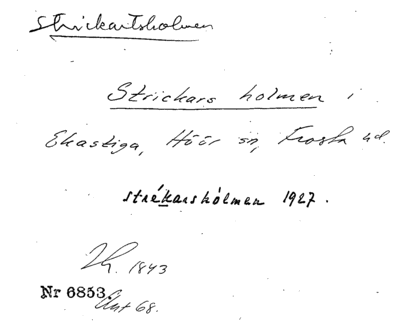 Strickartsholmen
Strickars holmen i
Ekastiga, Höör sn, Frosta hd.
strékarshólmen 1927.
Th. 1843
Nr 6853.
Ant 68.